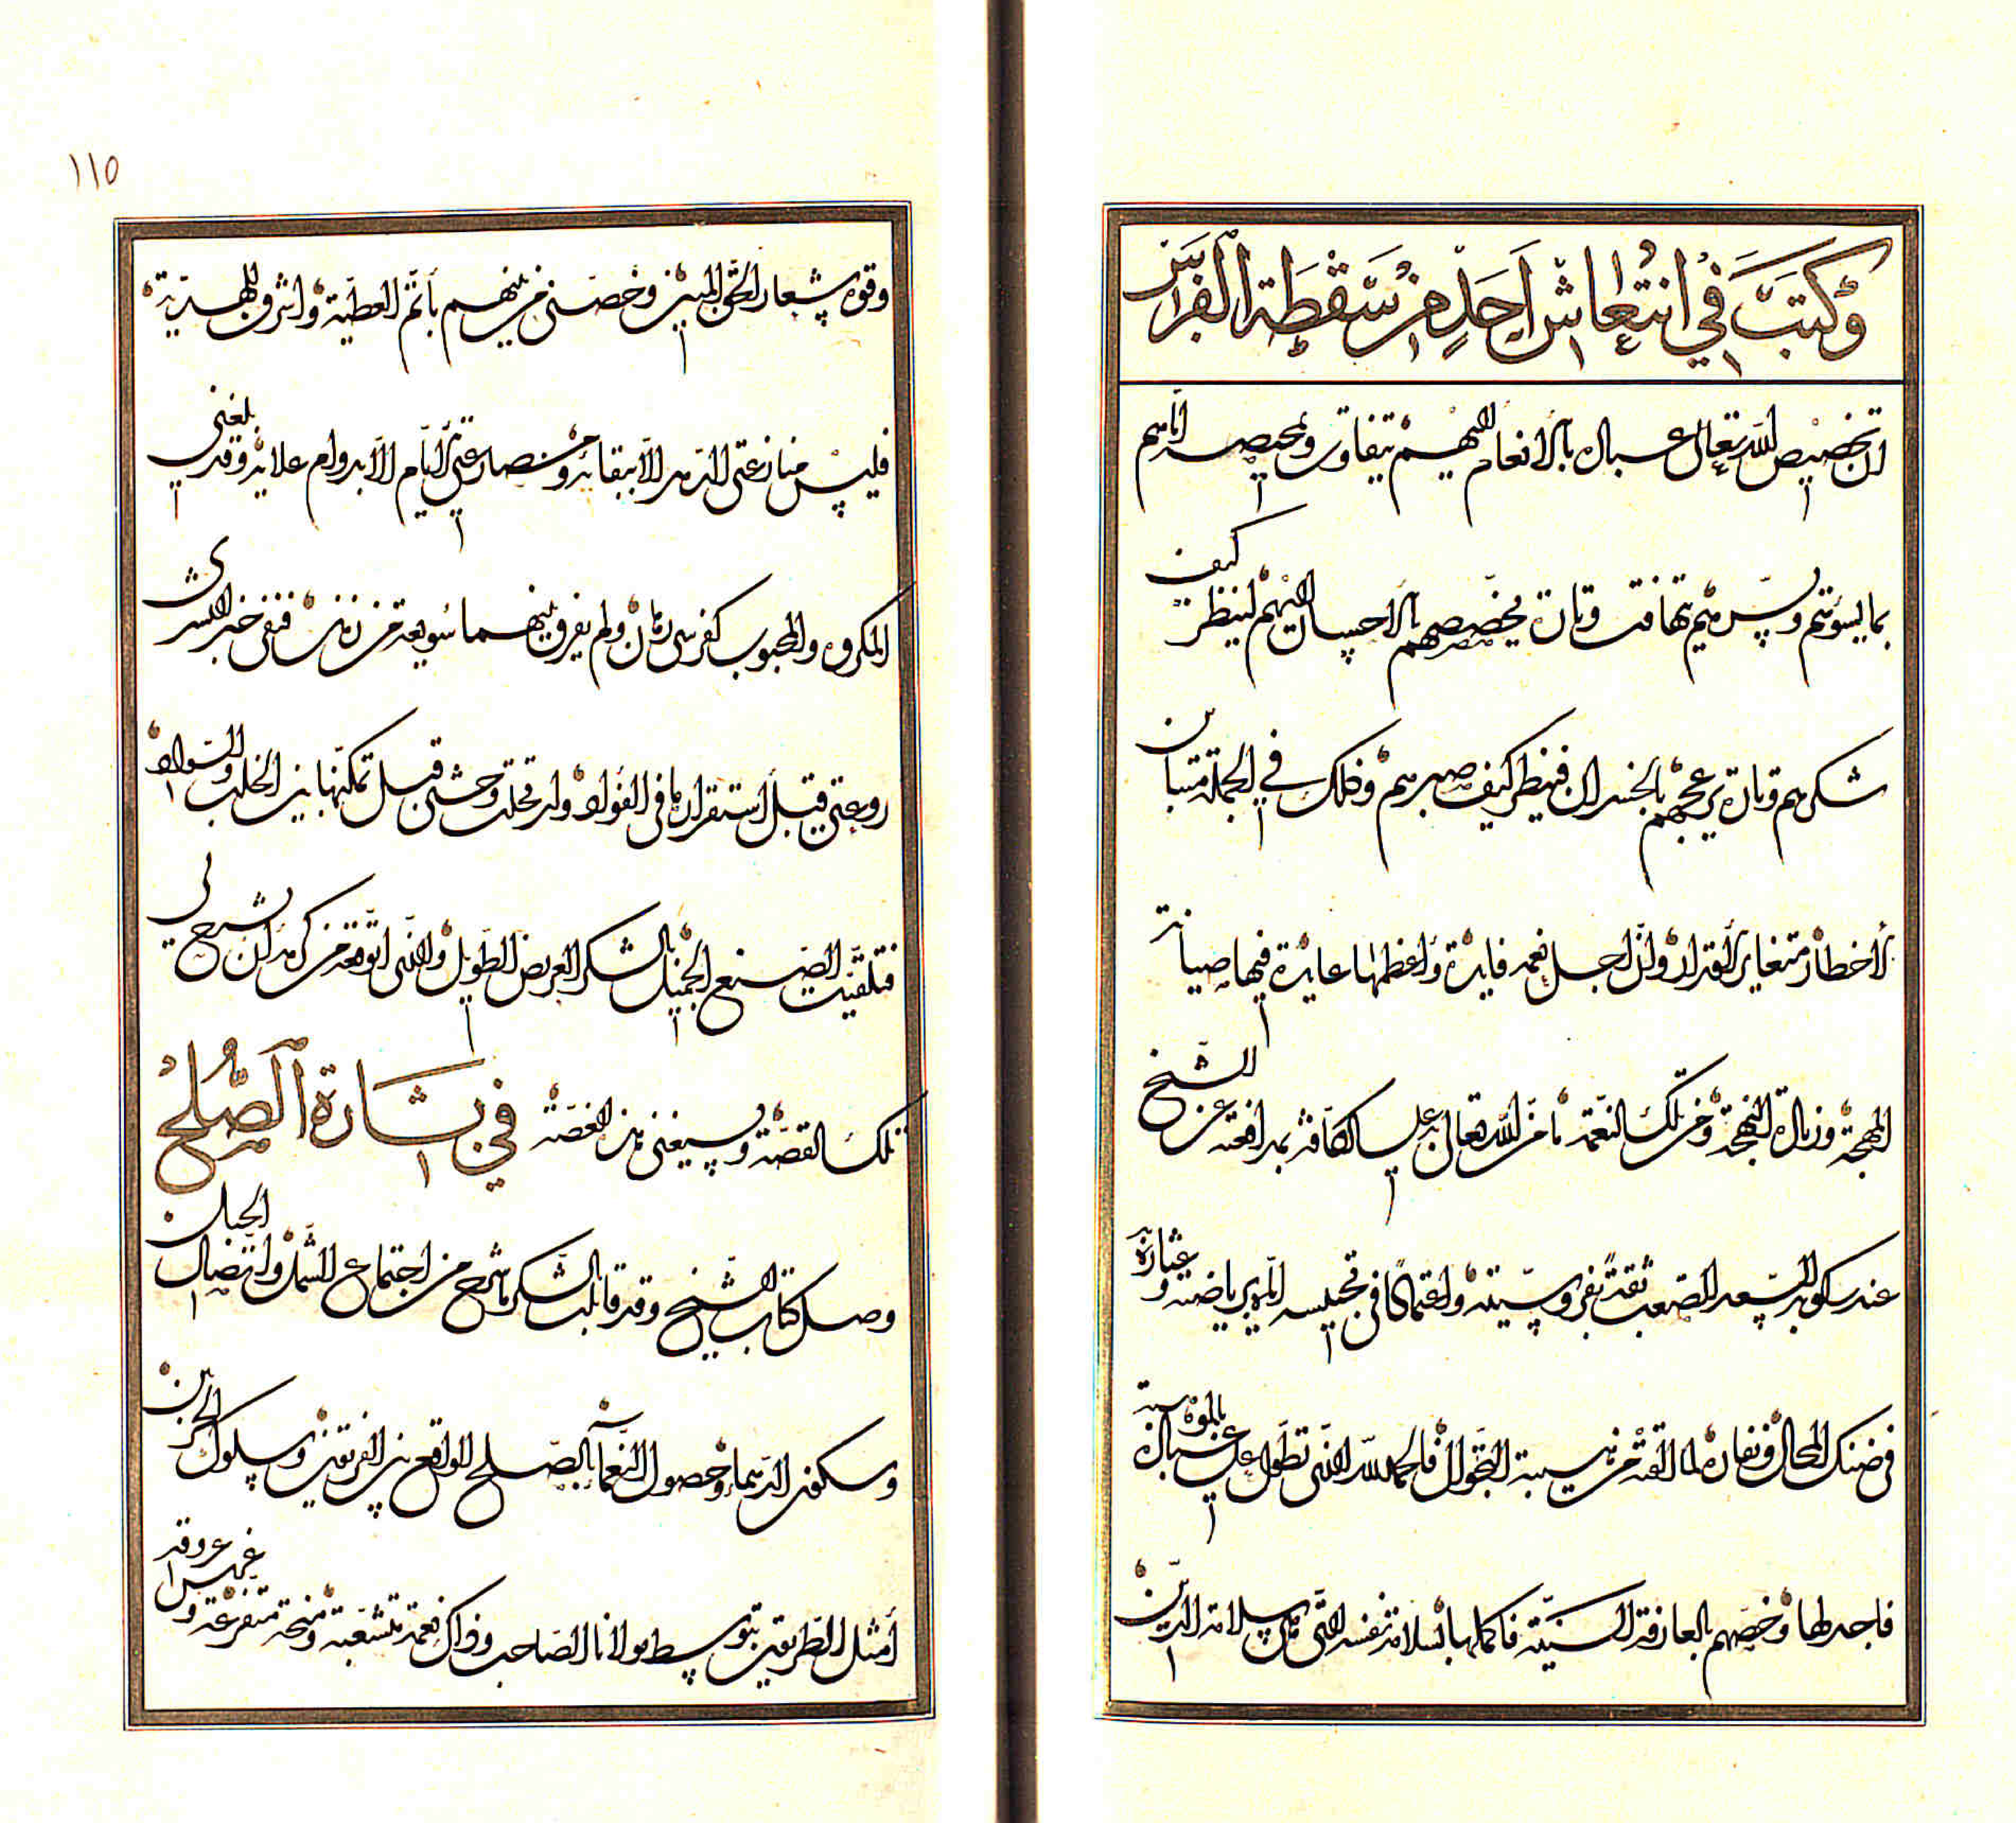 وكتب في انتعاش احد من سقطة الفرس
ان تخصيص الله تعالى عباده بالانعام اليهم يتفاوت وتمحيصه اياهم
بما يسؤهم ويسرهم يتهافت وتارة يخصصهم بالاحسان اليهم لينظر كيف
شكرهم وتارة يزعجهم بالخسران فينظر كيف صبرهم وذلك في الجملة متباين
الاخطار متغاير الاقدار وان اجل نعمه فايدة واعظمها عايدة فيها صيانة
المهجة وزيادة البهجة ومن تلك النعمة ما من الله تعالى به على الكافة بمدافعته عن الشيخ
عند ركوبه السعد الصعب ثقة بفروسيته واعتمادا في تحبيسه الى رياضته وعثاره
في ضنك المحال ونفاره لما القته من هيبة التجوال فالحمد لله الذي تطول على عباده بالموهبة
فاجدلها وخصهم بالعارفة السنية فاكملها بسلامة نفسه التي هي سلامة الدين
١١٥
وقوة شعار الحق المبين وخصني من بينهم باتم العطية واشرف الهدية
فليس منازعتي الدهر الا ببقائه ومصارعتي الايام الا بدوام علايه وقد بلغني
المكروه والمحبوب كفرسي رهان ولم يفرق بينهما سويعة من زمن فنفى خبر البشرى
روعتي قبل استقرارها في الفواد وارتحلت وحشتي قبل تمكنها بين الخلب والسواد
فتلقيت الصنع الجميل بالشكر العريض الطويل والذي اتوقعه من كرمه ان يشرح لي
تلك القصة ويسيغني هذه الغصة في بشارة الصلح
وصل كتاب الشيخ وقد قابلت بالشكر ما شرح من اجتماع الشمل واتصال الحبل
وسكون الدهماء وحصول النعماء بالصلح الواقع بين الفريقين وسلوك الحزبين
امثل الطريقين بتوسط مولانا الصاحب وذاك نعمة متشعبة ومنحة متفرعة وغمرس عروقه